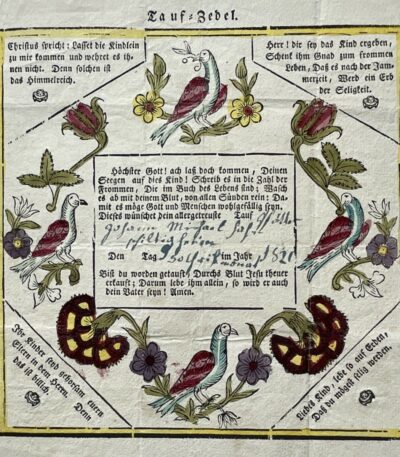 Tauf-Zedel.
Christus spricht: Lasset die Kindlein
zu mir kommen und wehret es ih-
nen nicht. Denn solchen ist
das Himmelreich.
Herr! dir sey das Kind ergeben,
Schenk ihm Gnad zum frommen
Leben, Daß es nach der Jam-
merzeit, Werd ein Erb
der Seligkeit.
Höchster Gott! ach laß doch kommen, Deinen
Seegen auf dies Kind! Schreib es in die Zahl der
Frommen, Die im Buch des Lebens sind; Wasch
es ab mit deinem Blut, von alten Sünden rein; Da-
mit es möge Gott und Menschen wohlgefällig seyn.
Dieses wünschet dein allergetreuste Tauf
Johann Michael
Den Tag im Jahr
Bist du worden getauft, Durchs Blut Jesu theuer
erkauft; Darum lebe ihm allein, so wird er auch
dein Vater seyn! Amen.
Ihr Kinder seyd gehorsam euren
Eltern in dem Herrn. Denn
das ist billich.
Liebes Kind, lebe so auf Erden,
Daß du mögest selig werden.